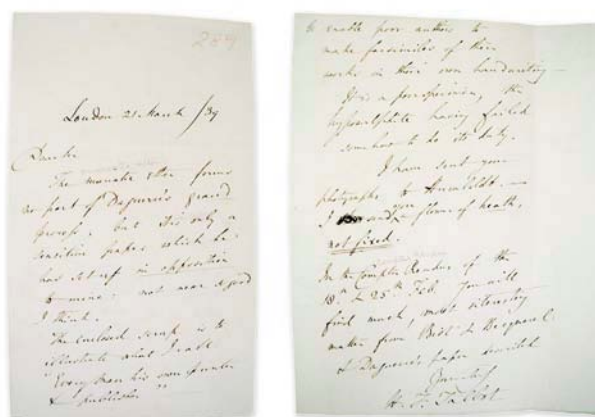 London 21. March /39
Dear Sir
The muriatic ether forms
no part of Daguerre's grand
process, but it is only a
sensitive paper which he
has set up in opposition
to mine, not near so good
I think.
The enclosed scrap is to
illustrate what I call
"Every man his own printer
& publisher"
to enable poor authors to
make facsimiles of their
works in their own handwriting —
It is a poor specimen, the
hyposulphite having failed
somehow to do its duty.
I have sent your
photographs to Humboldt. —
I send you a flower of heath,
not fixed.
In the Comptes Rendus of the
18th & 25th Feb. you will
find much, most interesting
matter from Biot & Becquerel
& Daguerre's paper described
Yours truly
H. F. Talbot